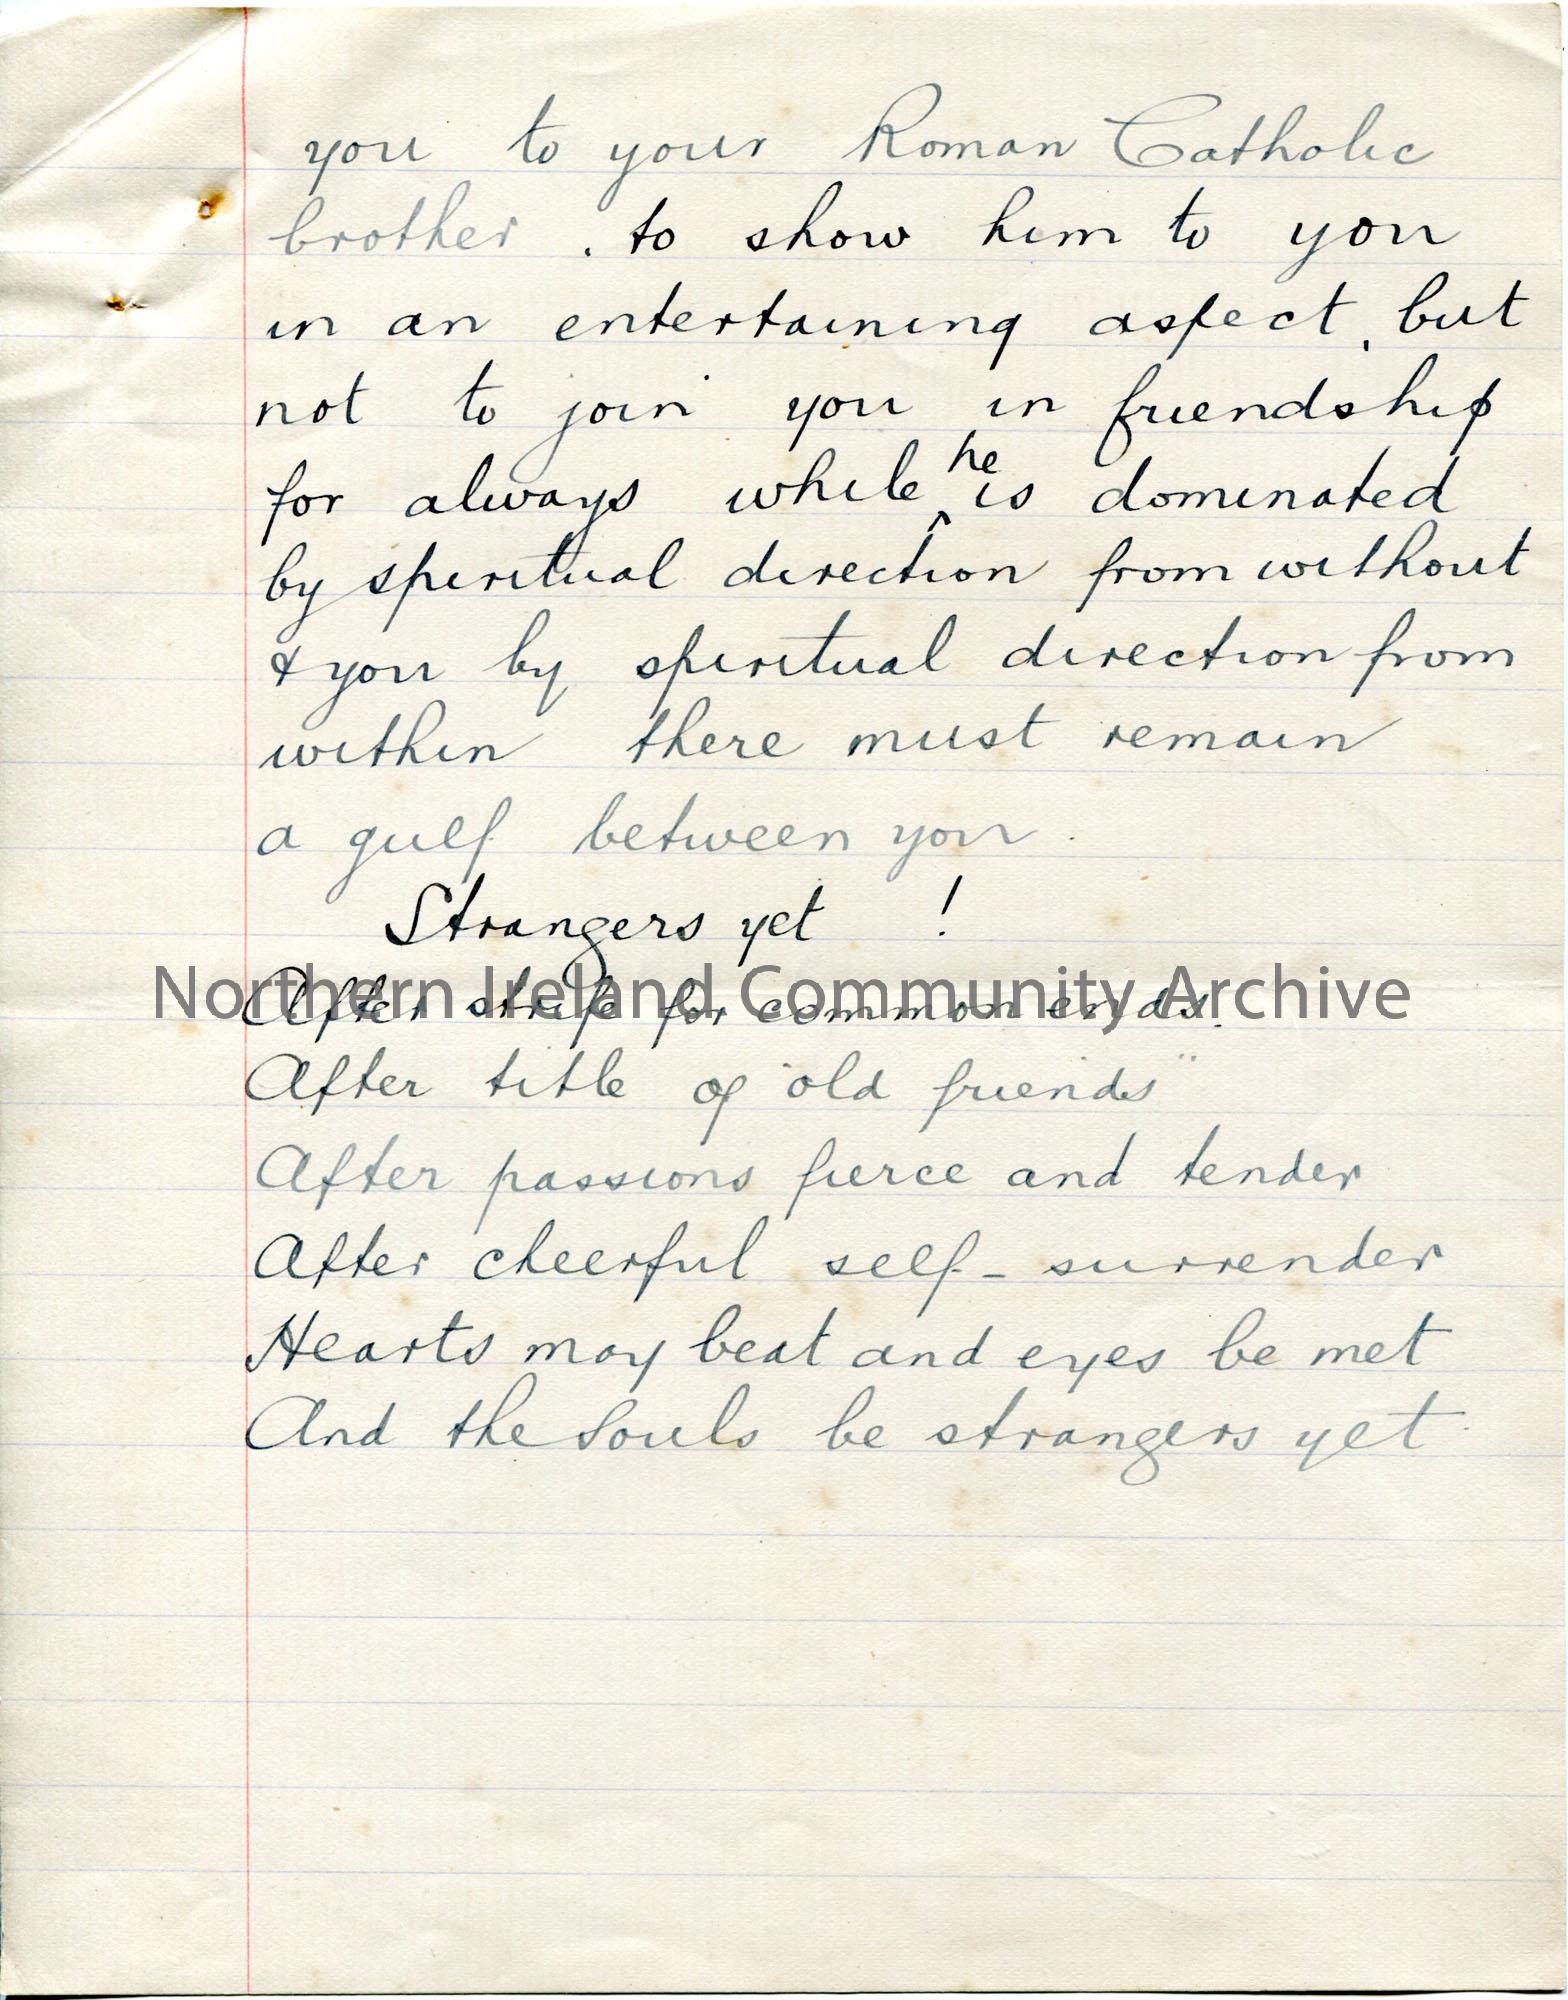 you to your Roman Catholic
brother . to show him to you
in an entertaining aspect, but
not to join you in friendship
for always while he is dominated
by spiritual direction from without
& you by spiritual direction from
within there must remain
a gulf between you.
Strangers yet !
After strife for common ends.
Northern Ireland Community Archive
After title of "old friends"
After passions fierce and tender
After cheerful self-surrender
Hearts may beat and eyes be met
And the souls be strangers yet.